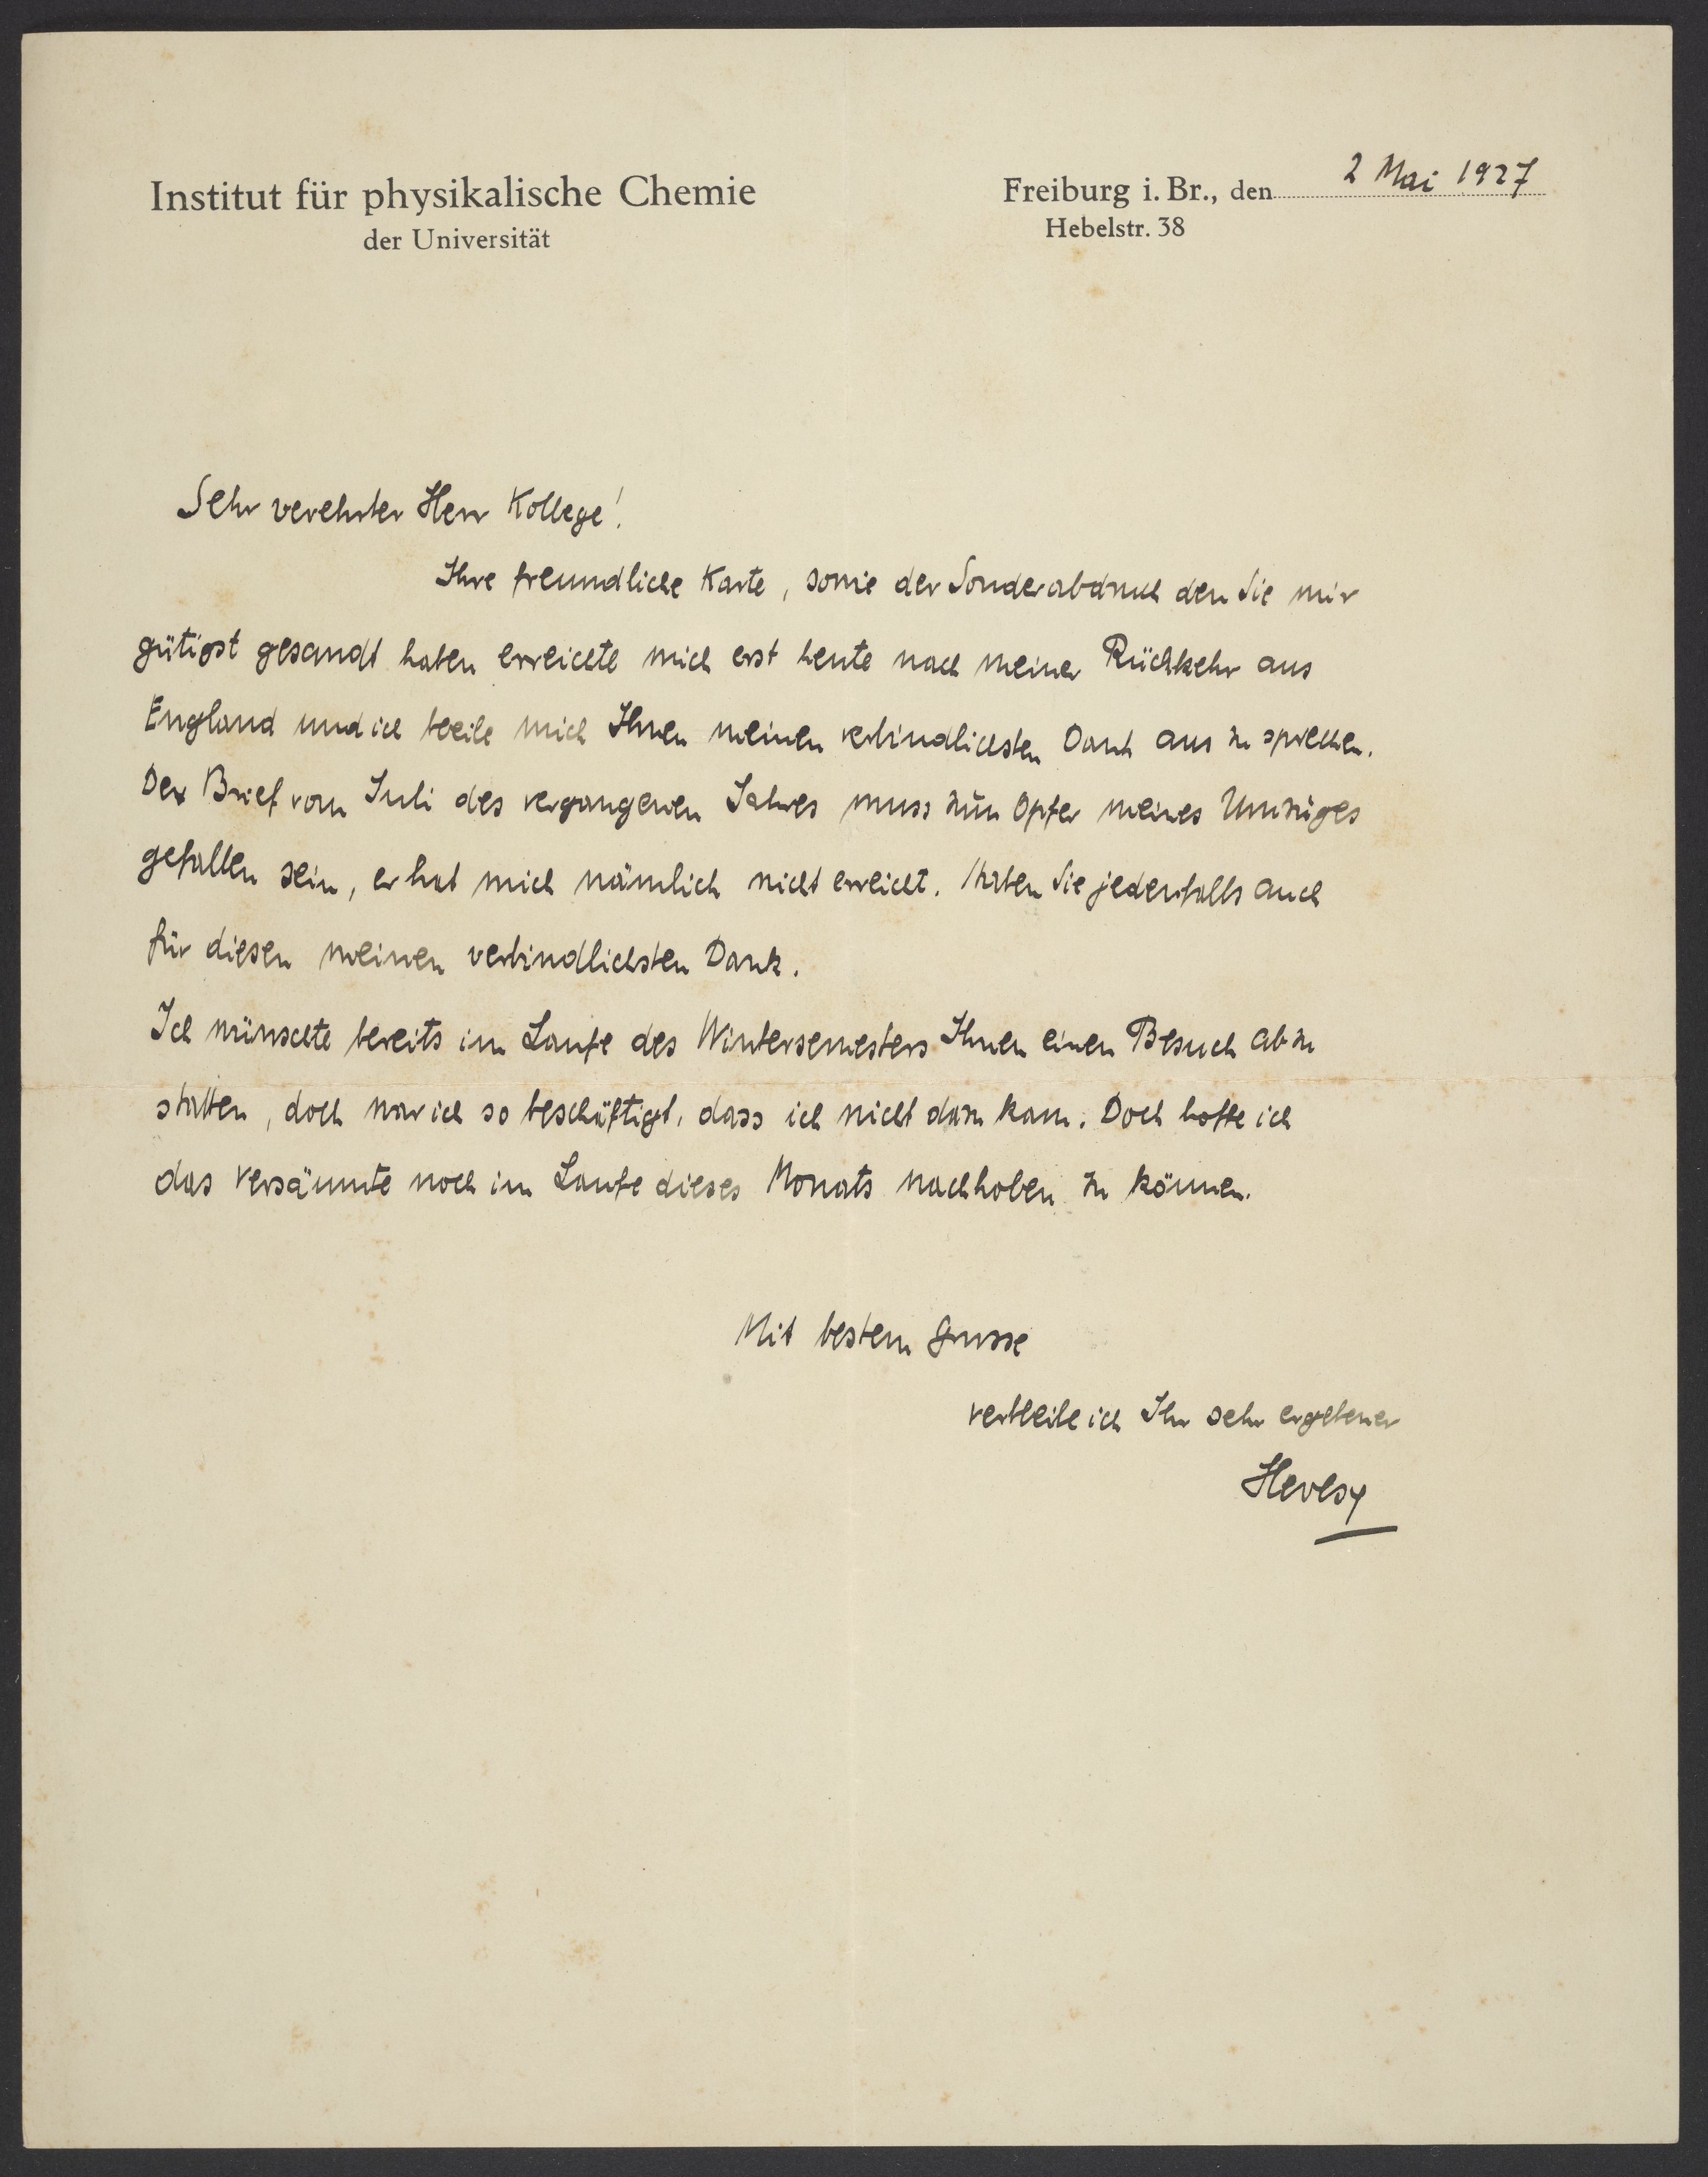 Institut für physikalische Chemie
der Universität
Freiburg i. Br., den 2 Mai 1927
Hebelstr. 38
Sehr verehrter Herr Kollege!
Ihre freundliche Karte, sowie der Sonderabdruck den Sie mir
gütigst gesandt haben erreichte mich erst heute nach meiner Rückkehr aus
England und ich beeile mich Ihnen meinen verbindlichsten Dank aus zu sprechen.
Der Brief vom Juli des vergangenen Jahres muss zum Opfer meines Umzuges
gefallen sein, er hat mich nämlich nicht erreicht. Haben Sie jedenfalls auch
für diesen meinen verbindlichsten Dank.
Ich wünschte bereits im Laufe des Wintersemesters Ihnen einen Besuch ab zu
statten, doch war ich so beschäftigt, dass ich nicht dazu kam. Doch hoffe ich
das versäumte noch im Laufe dieses Monats nachhohen zu können.
Mit bestem Grusse
verbleibe ich Ihr sehr ergebener
Hevesy